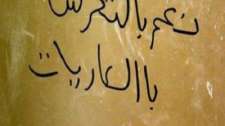 نعم بالتحرش
باالعاريات